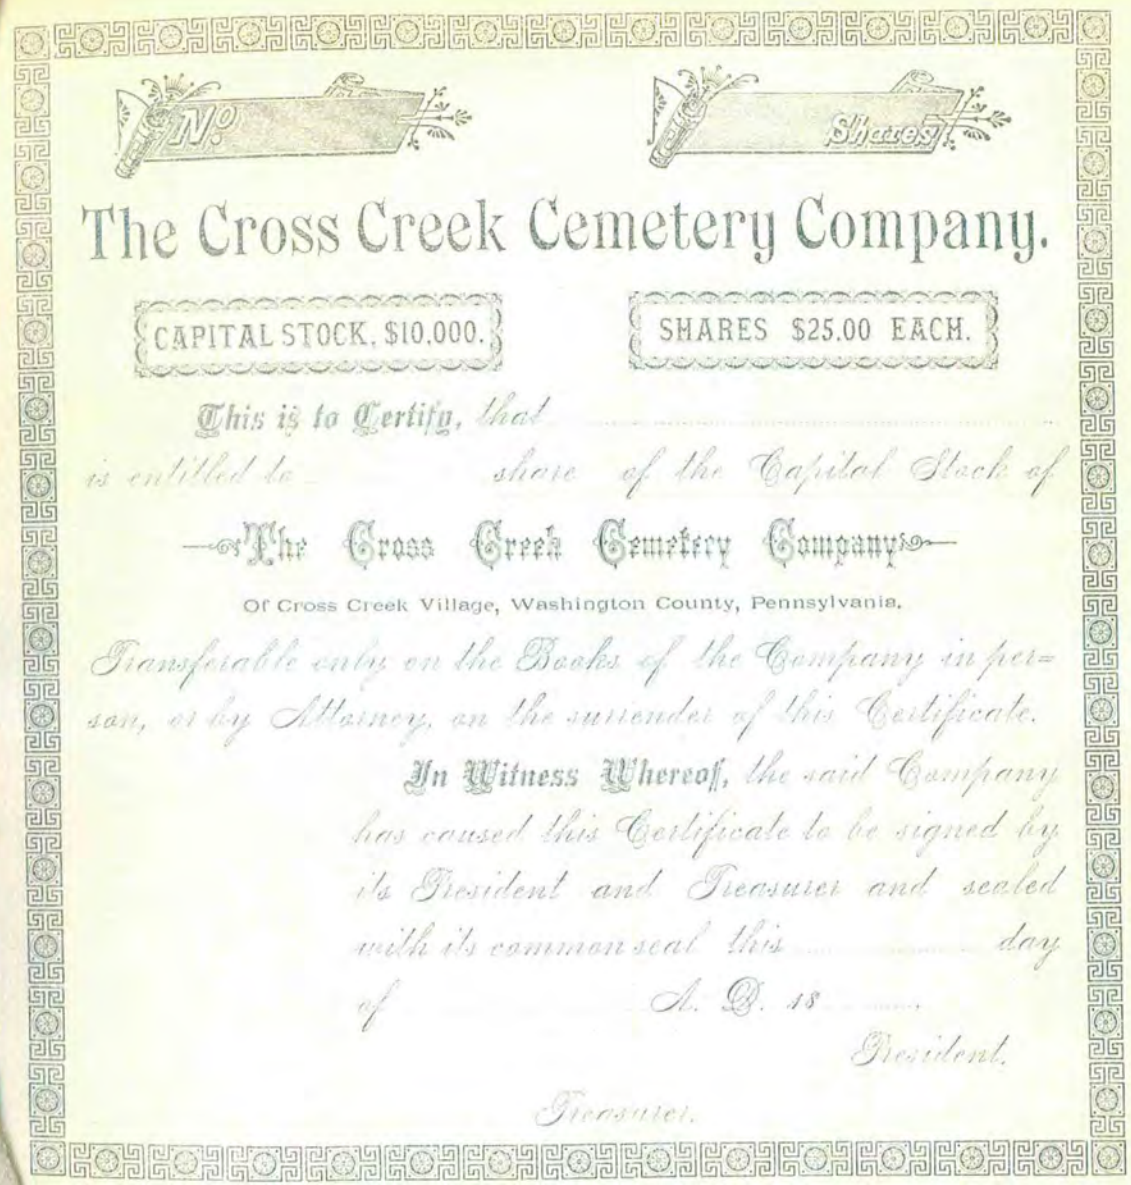 No
Shares
The Cross Creek Cemetery Company.
CAPITAL STOCK, $10,000.
SHARES $25.00 EACH.
This is to Certify, that
is entitled to share of the Capital Stock of
The Cross Creek Cemetery Company
Of Cross Creek Village, Washington County, Pennsylvania.
Transferable only on the Books of the Company in per=
son, or by Attorney, on the surrender of this Certificate.
In Witness Whereof, the said Company
has caused this Certificate to be signed by
its President and Treasurer and sealed
with its common seal this day
of A. D. 18
President.
Treasurer.